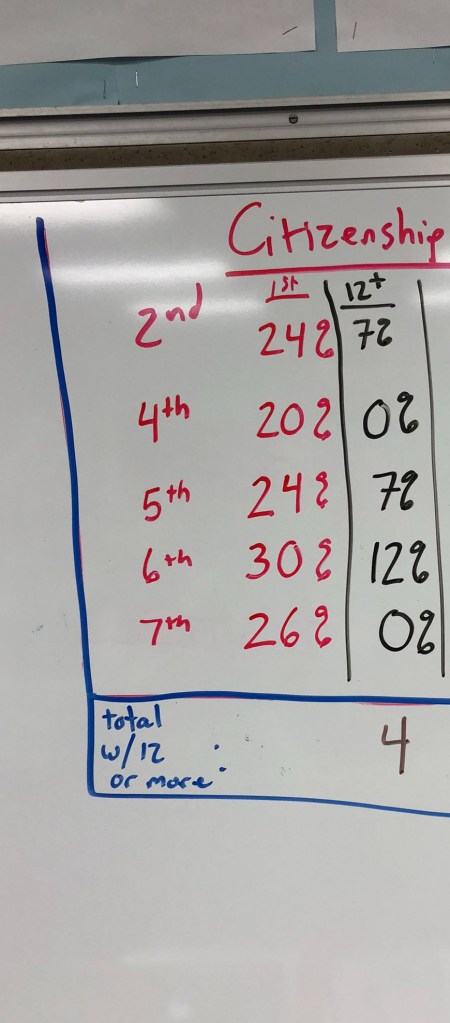 Citizenship
1st 12+
2nd 24% 7%
4th 20% 0%
5th 24% 7%
6th 30% 12%
7th 26% 0%
total
w/12 : 4
or more